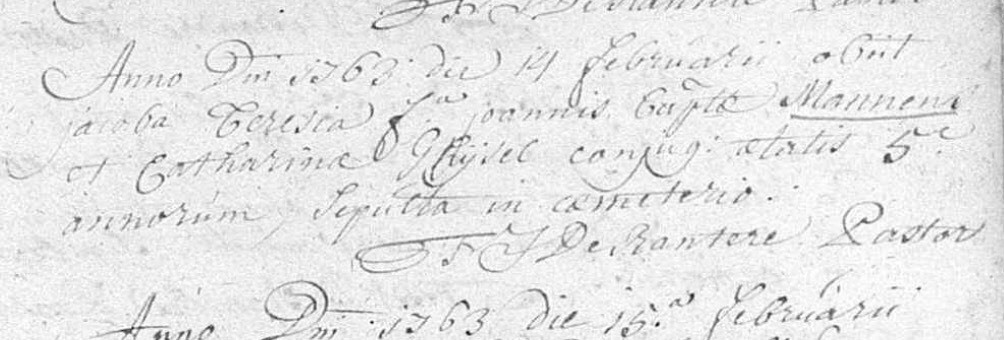 F J DeKantere Pastor
Anno Dni 1763 die 14 februarii obiit
jacoba Teresia f.a joannis bap̃tæ Mannens
et Catharinæ Ghijsel conjug: ætatis 5.e
annorum, Sepulta in cæmeterio.
F J DeKantere Pastor
Anno Dni 1763 die 15.a februarii